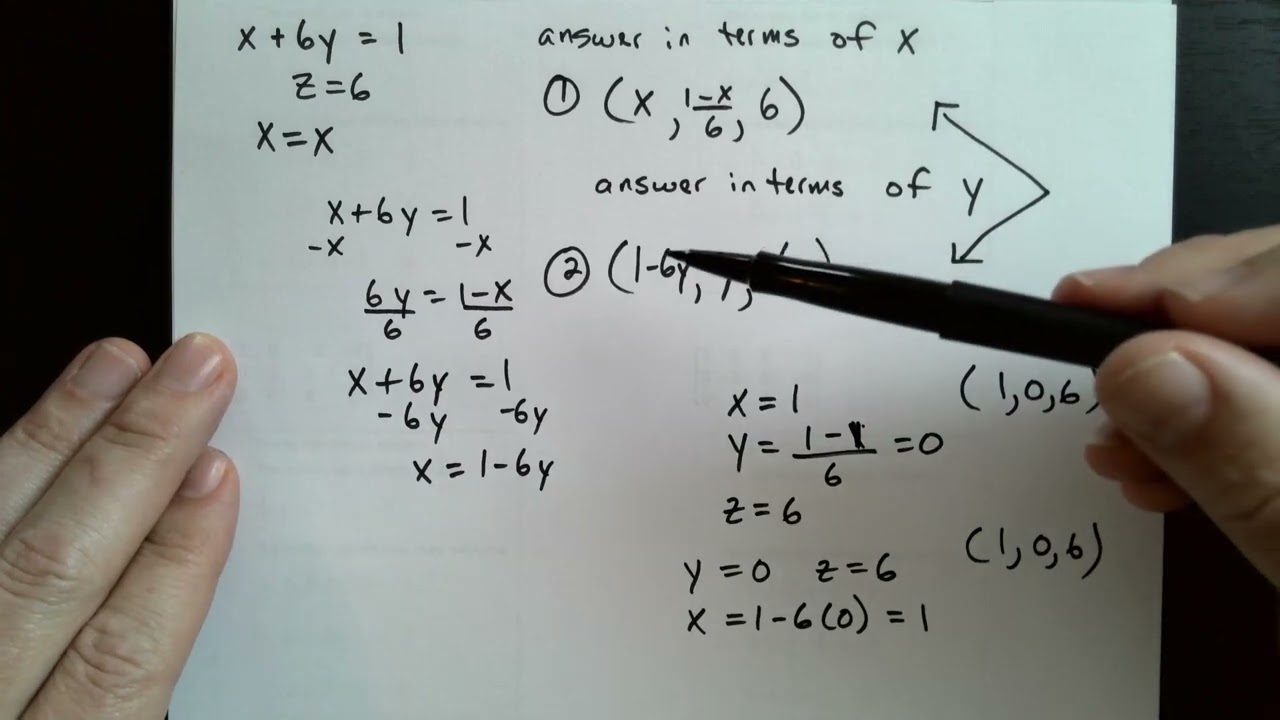 x + 6y = 1
z = 6
x = x
answer in terms of x
① (x, 1-x/6, 6)
answer in terms of y
② (1-6y, y,
x + 6y = 1
-x -x
6y/6 = 1-x/6
x + 6y = 1
-6y -6y
x = 1 - 6y
x = 1
y = 1-1/6 = 0
z = 6
(1, 0, 6)
y = 0 z = 6
x = 1 - 6(0) = 1
(1, 0, 6)